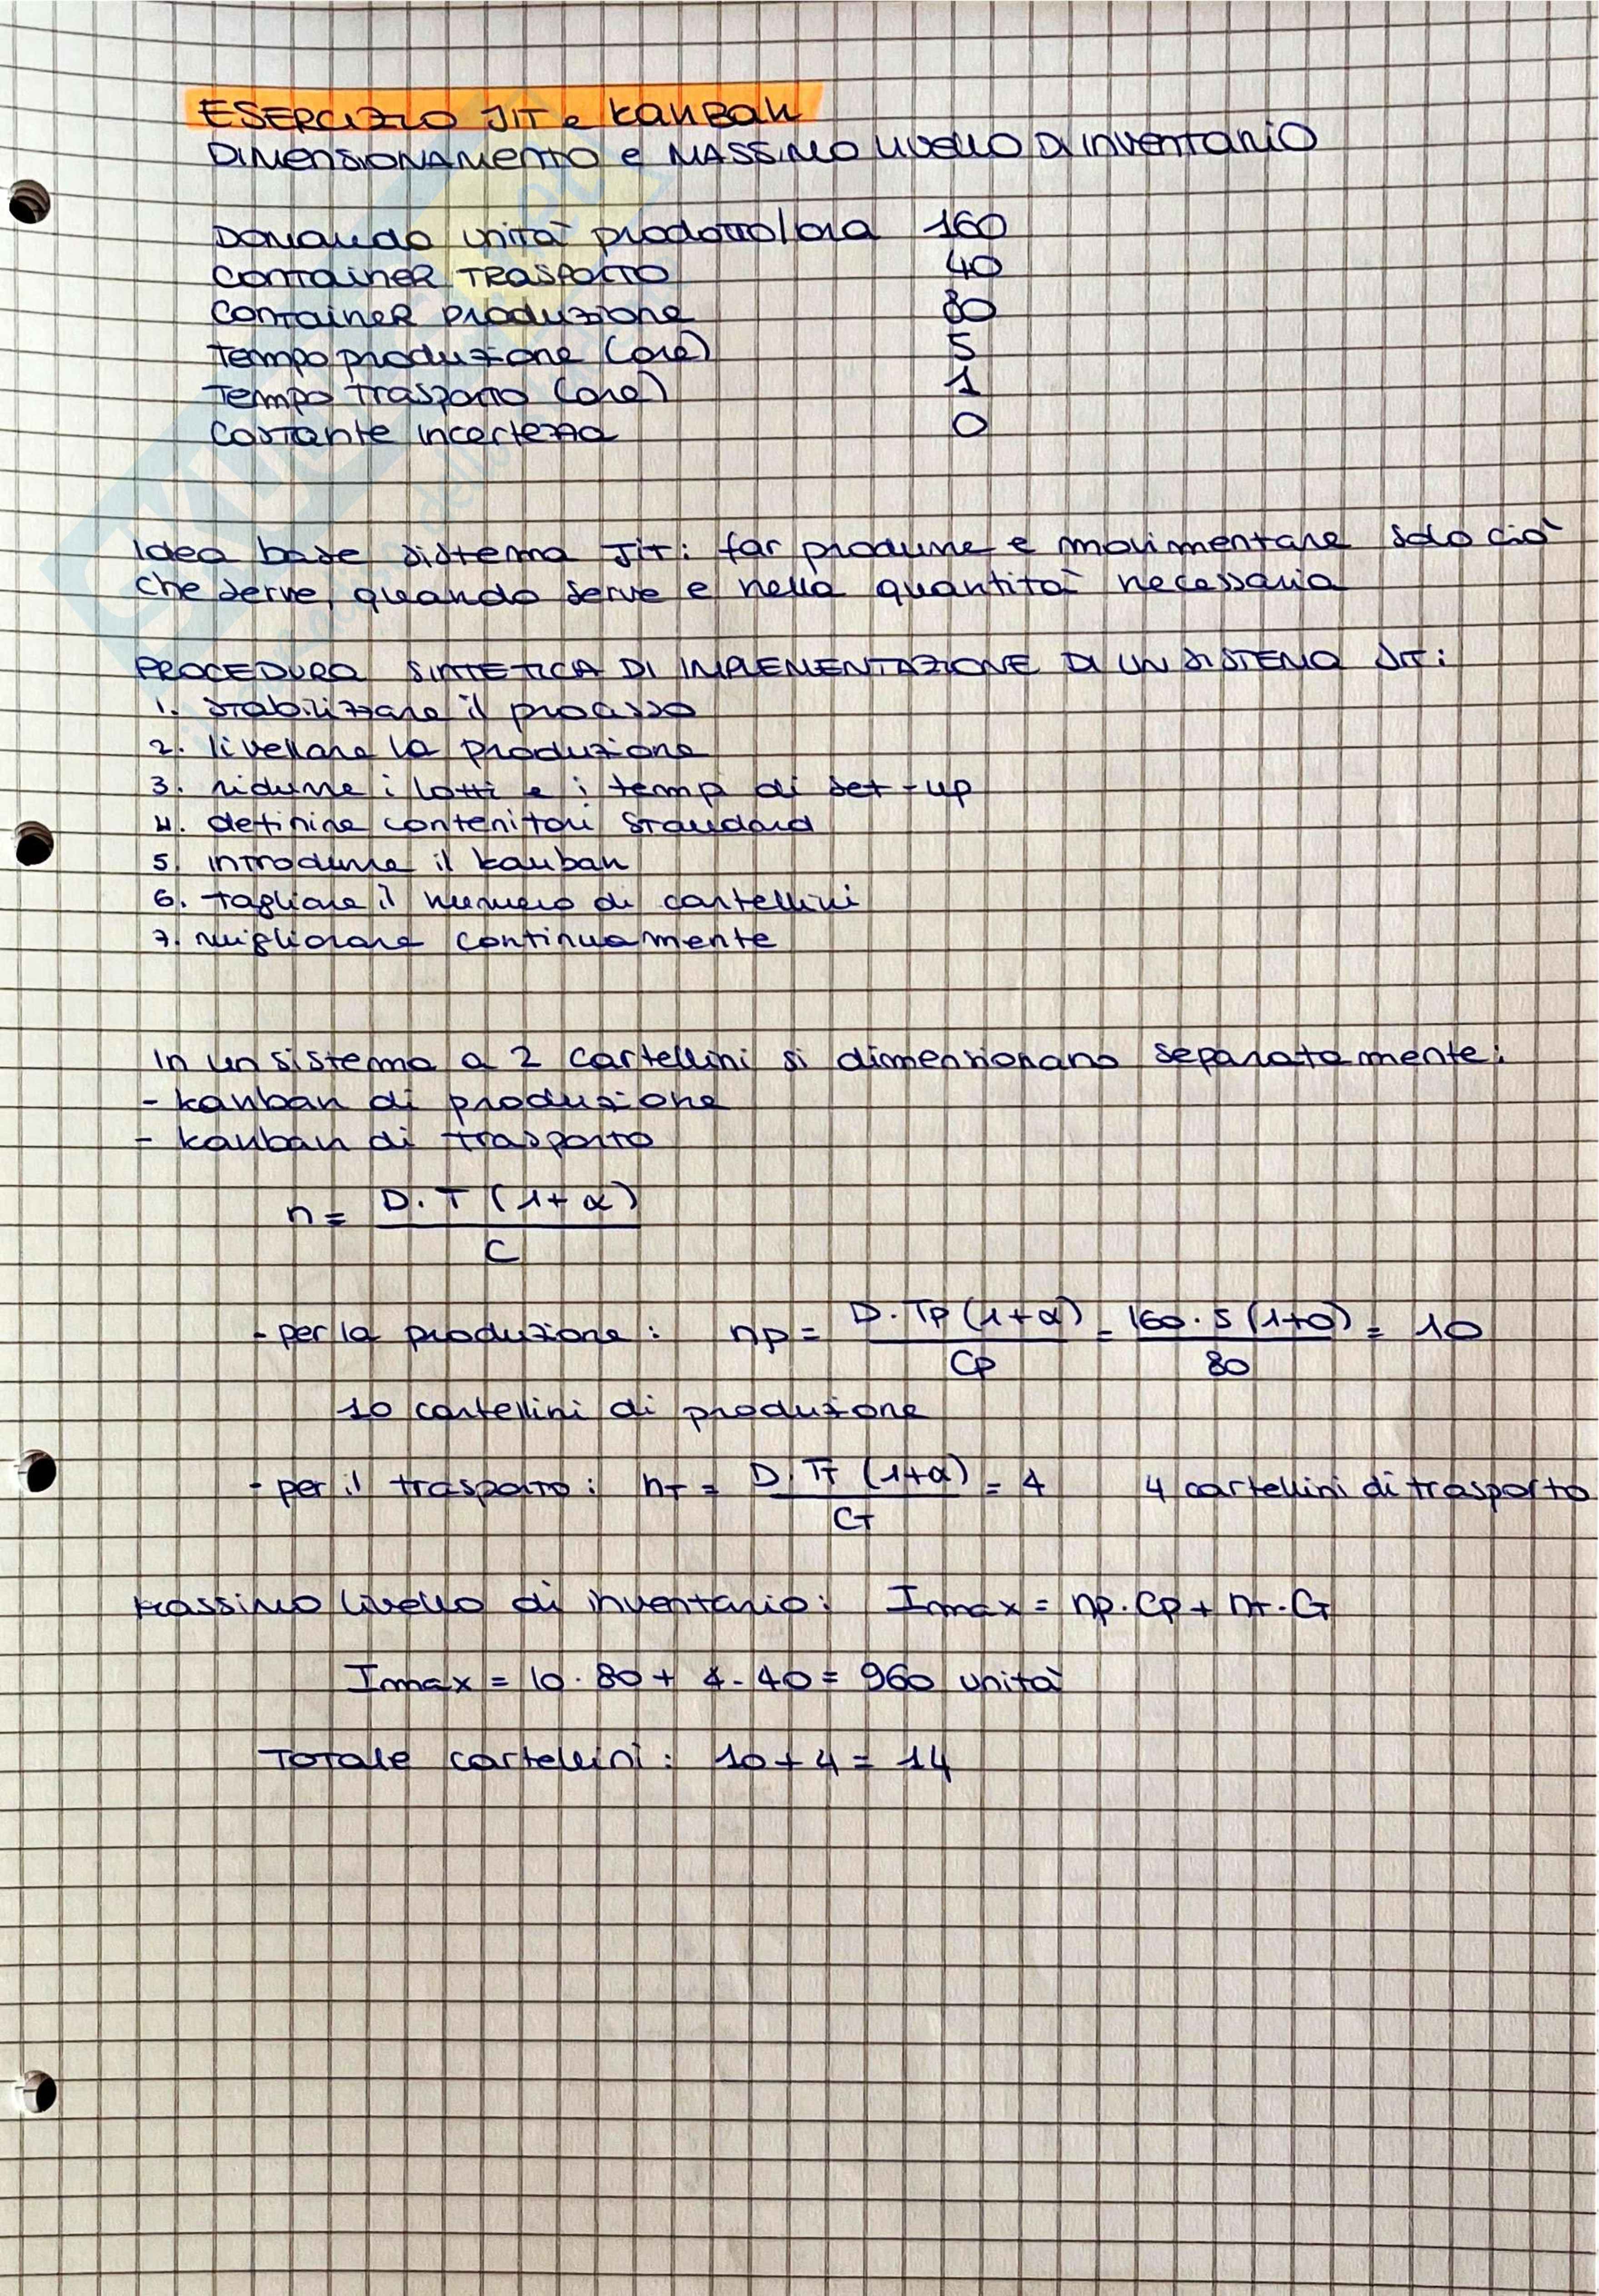 ESERCIZIO JIT e KANBAN
DIMENSIONAMENTO e MASSIMO LIVELLO DI INVENTARIO
Domanda unità prodotto/ora 160
CONTAINER TRASPORTO 40
CONTAINER PRODUZIONE 80
Tempo produzione (ore) 5
Tempo trasporto (ore) 1
Costante incertezza 0
Idea base sistema JIT: far produrre e movimentare solo ciò
che serve, quando serve e nella quantità necessaria
PROCEDURA SINTETICA DI IMPLEMENTAZIONE DI UN SISTEMA JIT:
1. stabilizzare il processo
2. livellare la produzione
3. ridurre i lotti e i tempi di set-up
4. definire contenitori standard
5. introdurre il kanban
6. tagliare il numero di cartellini
7. migliorare continuamente
In un sistema a 2 cartellini si dimensionano separatamente:
- kanban di produzione
- kanban di trasporto
n = D. T (1+α) / C
- per la produzione: np = D. Tp (1+α) / Cp = 160. 5 (1+0) / 80 = 10
10 cartellini di produzione
- per il trasporto: nT = D. TT (1+α) / CT = 4 4 cartellini di trasporto
Massimo livello di inventario: Imax = np. Cp + nT. CT
Imax = 10. 80 + 4. 40 = 960 unità
Totale cartellini: 10 + 4 = 14